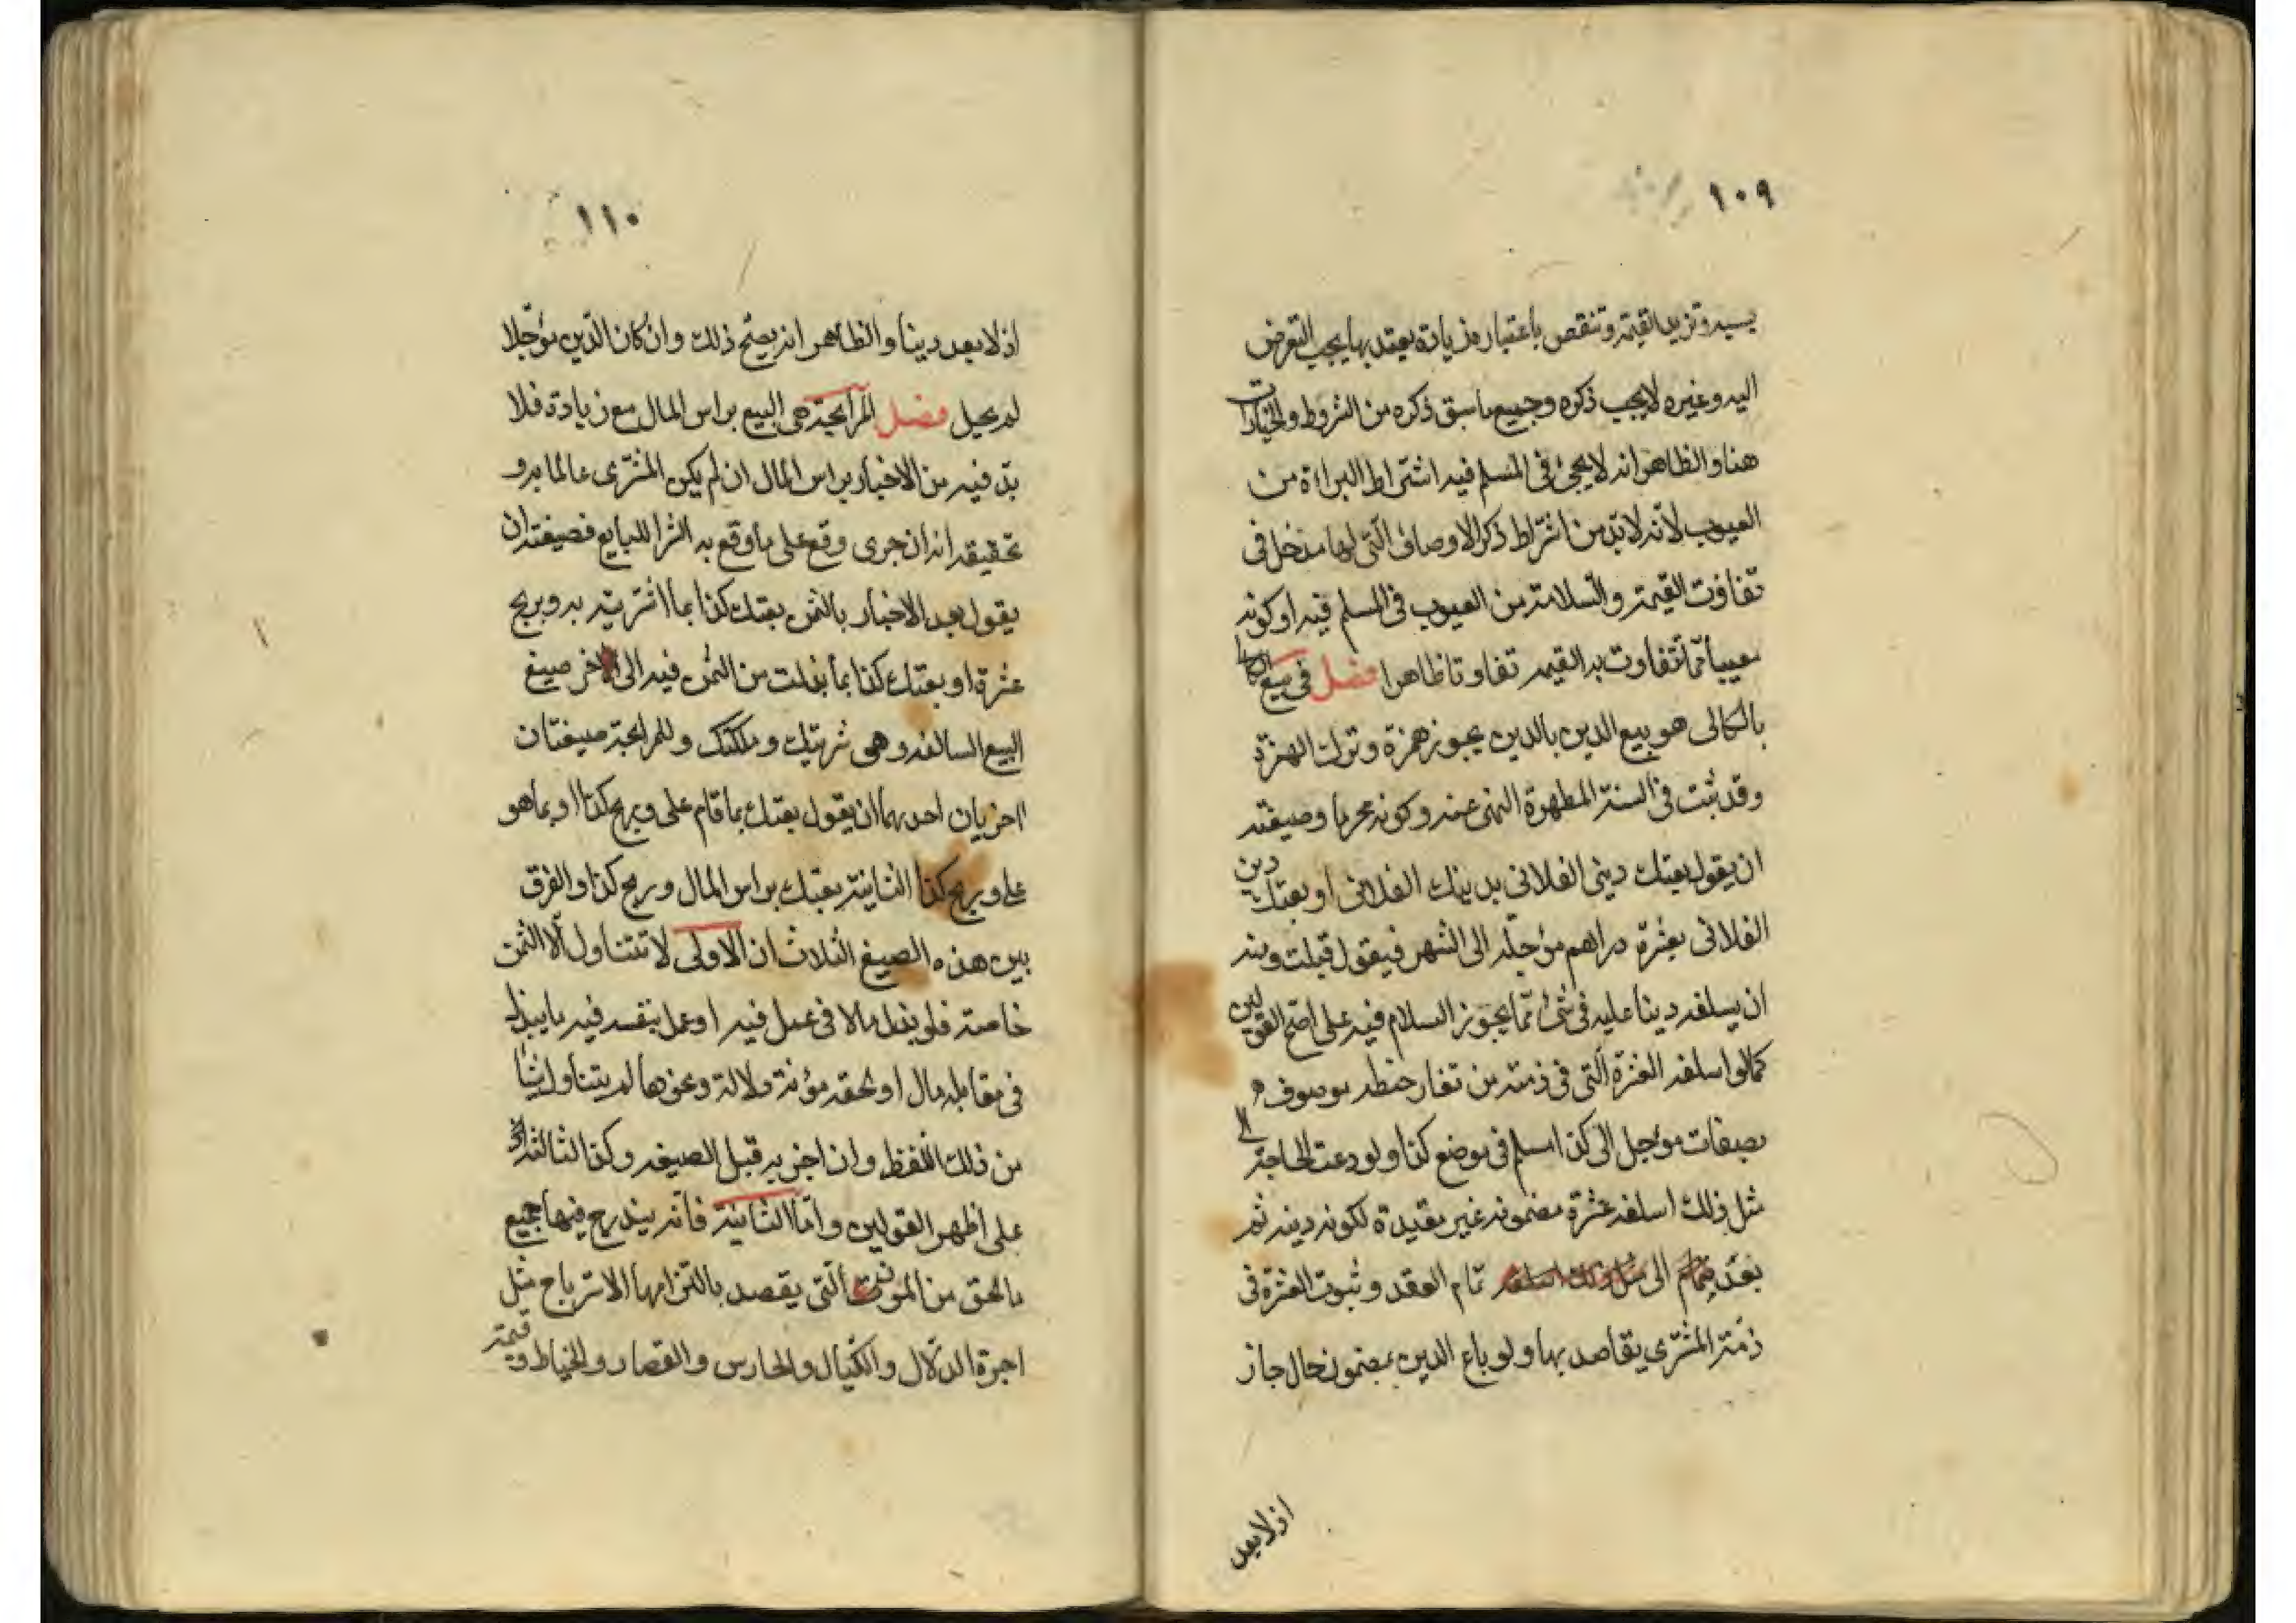 ١٠٩
يسيره وتزيد القيمة وتنقص باعتباره زيادة يعتد بها يجب التعرض
اليه وغيره لا يجب ذكره وجميع ما سبق ذكره من الشروط والخيارات
هنا والظاهر انه لا يجئ في المسلم فيه اشتراط البراءة من
العيوب لأنه لا بد من اشتراط ذكر الاوصاف التي لها مدخل في
تفاوت القيمة والسلامة من العيوب في المسلم فيه او كونه
معيبا مما تتفاوت به القيمه تفاوتا ظاهرا فصل في بيع الكالى
بالكالى هو بيع الدين بالدين يجوز همزة وترك الهمزة
وقد ثبت في السنة المطهرة النهى عنه وكونه محرما وصيغته
ان يقول بعتك دينى الفلانى بدينك الفلانى او بعتك دين
الفلانى بعشرة دراهم مؤجلة الى الشهر فيقول قبلت ومنه
ان يسلفه دينا عليه في شئ مما يجوز السلام فيه على اصح القولين
كما لو اسلفه العشرة التي في ذمته من تغار حنطه موصوفه
بصفات مؤجل الى كذا مسلم في موضع كذا ولو دعت الحاجة الى
مثل ذلك اسلفه عشرة مضمونه غير مقيدة لكونه دينه ثم
بعد تمام العقد وثبوت العشرة فى
ذمة المشترى يتقاصد بها ولو باع الدين بمضمون حال جاز
اذ لا يعد
١١٠
اذ لا يعد دينا والظاهر انه يصح ذلك وان كان الدين مؤجلا
لم يحل فصل المرابحة هى البيع براس المال مع زيادة فلا
بد فيه من الاخبار براس المال ان لم يكن المشترى عالما به و
تحقيقه انه ان جرى وقع على ما وقع به الشرا للبايع فصيغته ان
يقول بعد الاخبار بالثمن بعتك كذا بما اشتريته به وبربح
عشرة او بعتك كذا بما بذلت من الثمن فيه الى اخر صيغ
البيع السالفه وهى شريتك وملكتك وللمرابحة صيغتان
اخريان احديهما ان يقول بعتك بما قام على وبربح كذا او بما هو
على وبربح كذا الثانية بعتك براس المال وربح كذا والفرق
بين هذه الصيغ الثلاث ان الاولى لا تتناول الا الثمن
خاصة فلو بذل مالا في عمل فيه او عمل بنفسه فيه ما يبذل
في مقابله مال او لحقه مؤنة دلالة ونحوها لم يتناول شيئا
من ذلك اللفظ وان اخبر به قبل الصيغه وكذا الثالثة
على اظهر القولين واما الثانية فانه يندرج فيها جميع
ما لحق من المون التي يقصد بالتزامها الاسترباح مثل
اجرة الدلال والكيال والحارس والقصار والخياط وقيمة